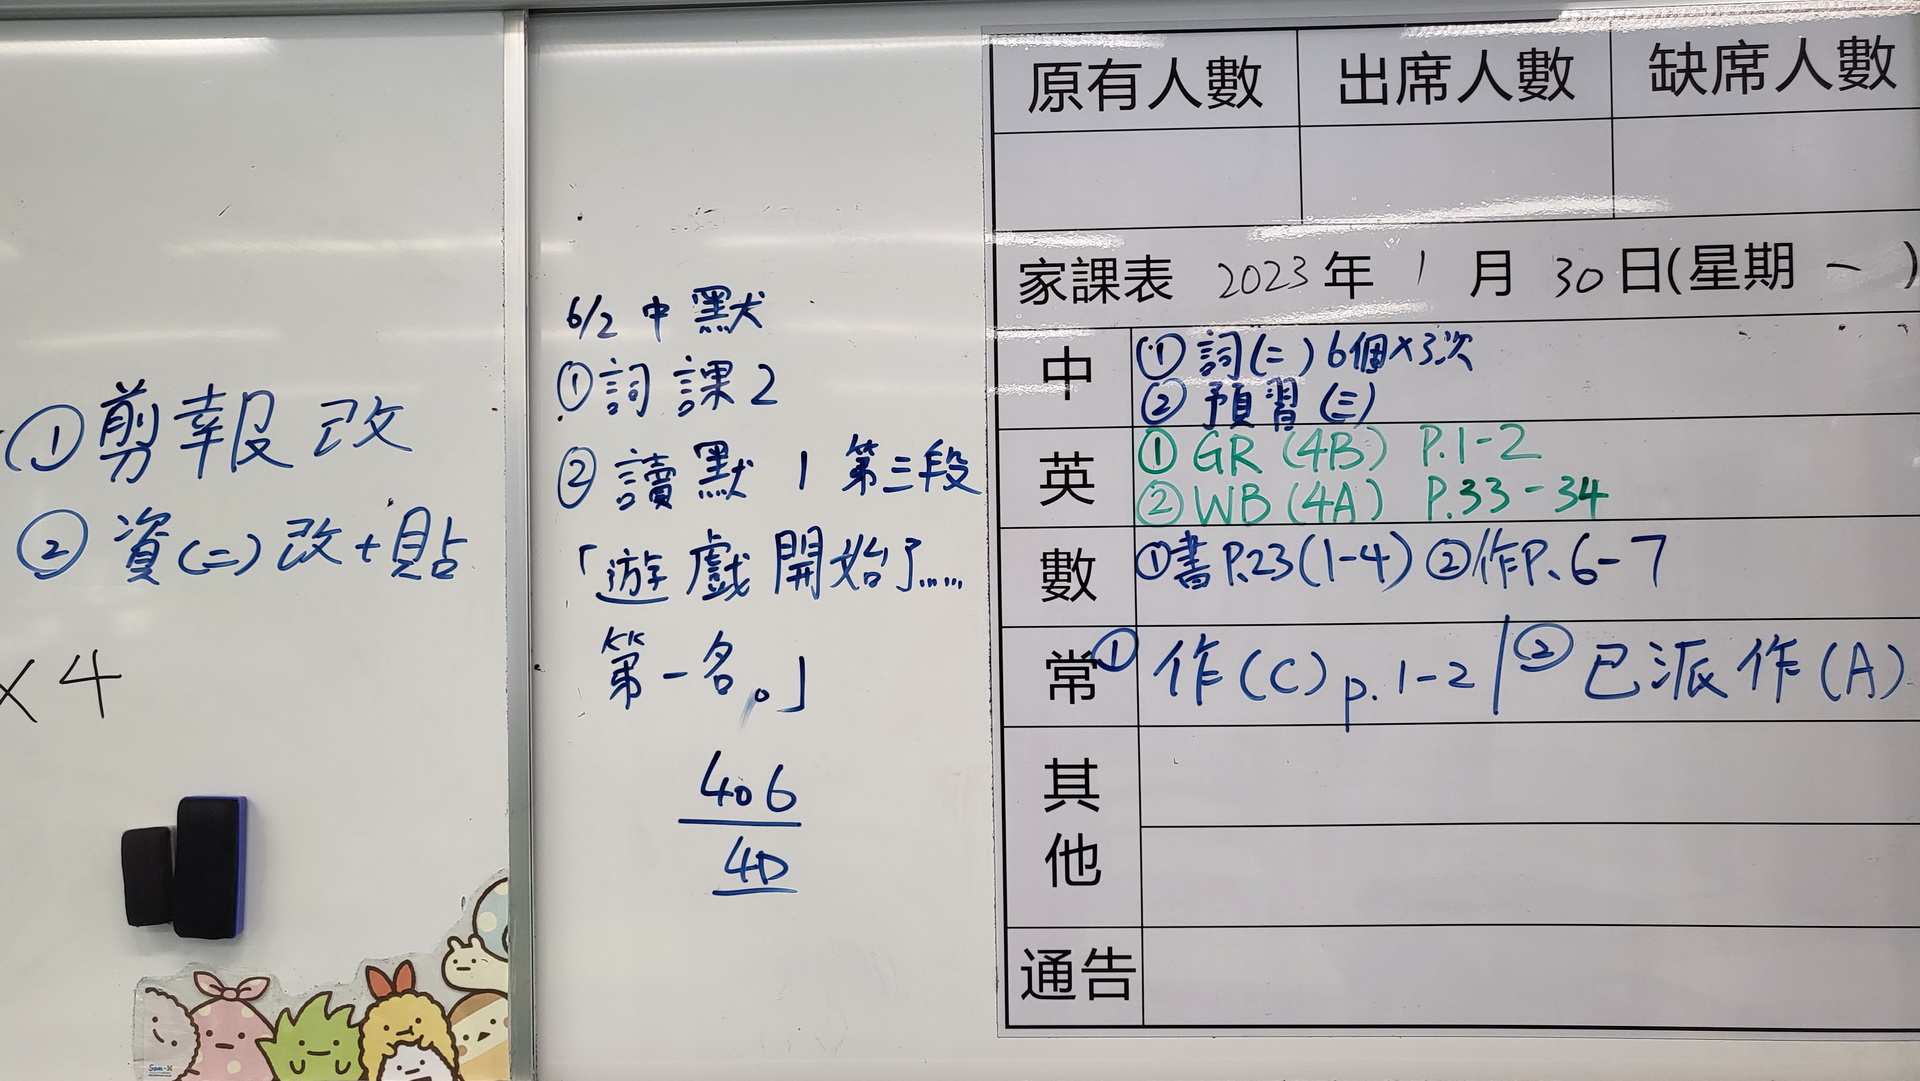 ①剪報改
②資(二)改+貼
×4
6/2 中默
①詞 課2
②讀默 1 第三段
「遊戲開始了……
第一名。」
406
40
原有人數 出席人數 缺席人數
家課表 2023年 1月 30日(星期一)
中 ①詞(二)6個×3次
②預習(三)
英 ①GR (4B) P.1-2
②WB (4A) P.33-34
數 ①書P.23(1-4) ②作P.6-7
常 ①作(C)p.1-2/②已派作(A)
其他
通告
San-X